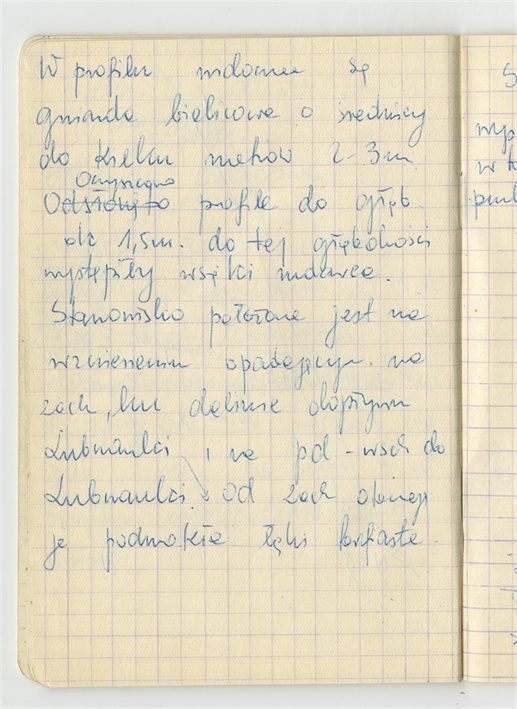 W profilu widoczne są
gniazda bielicowe o średnicy
do kilku metrów 2-3m
Oczyszczono
Odsłonięto profile do głęb.
ok 1,5m. do tej głębokości
wystąpiły wsęki
Stanowisko położone jest na
wzniesieniu opadającym na
zach, ku dolinie dopływu
Lubnauki i na pd-wsch do
Lubnauki. Od zach otacają
je podmokłe łąki torfaste.
S
wyp
w t
punk